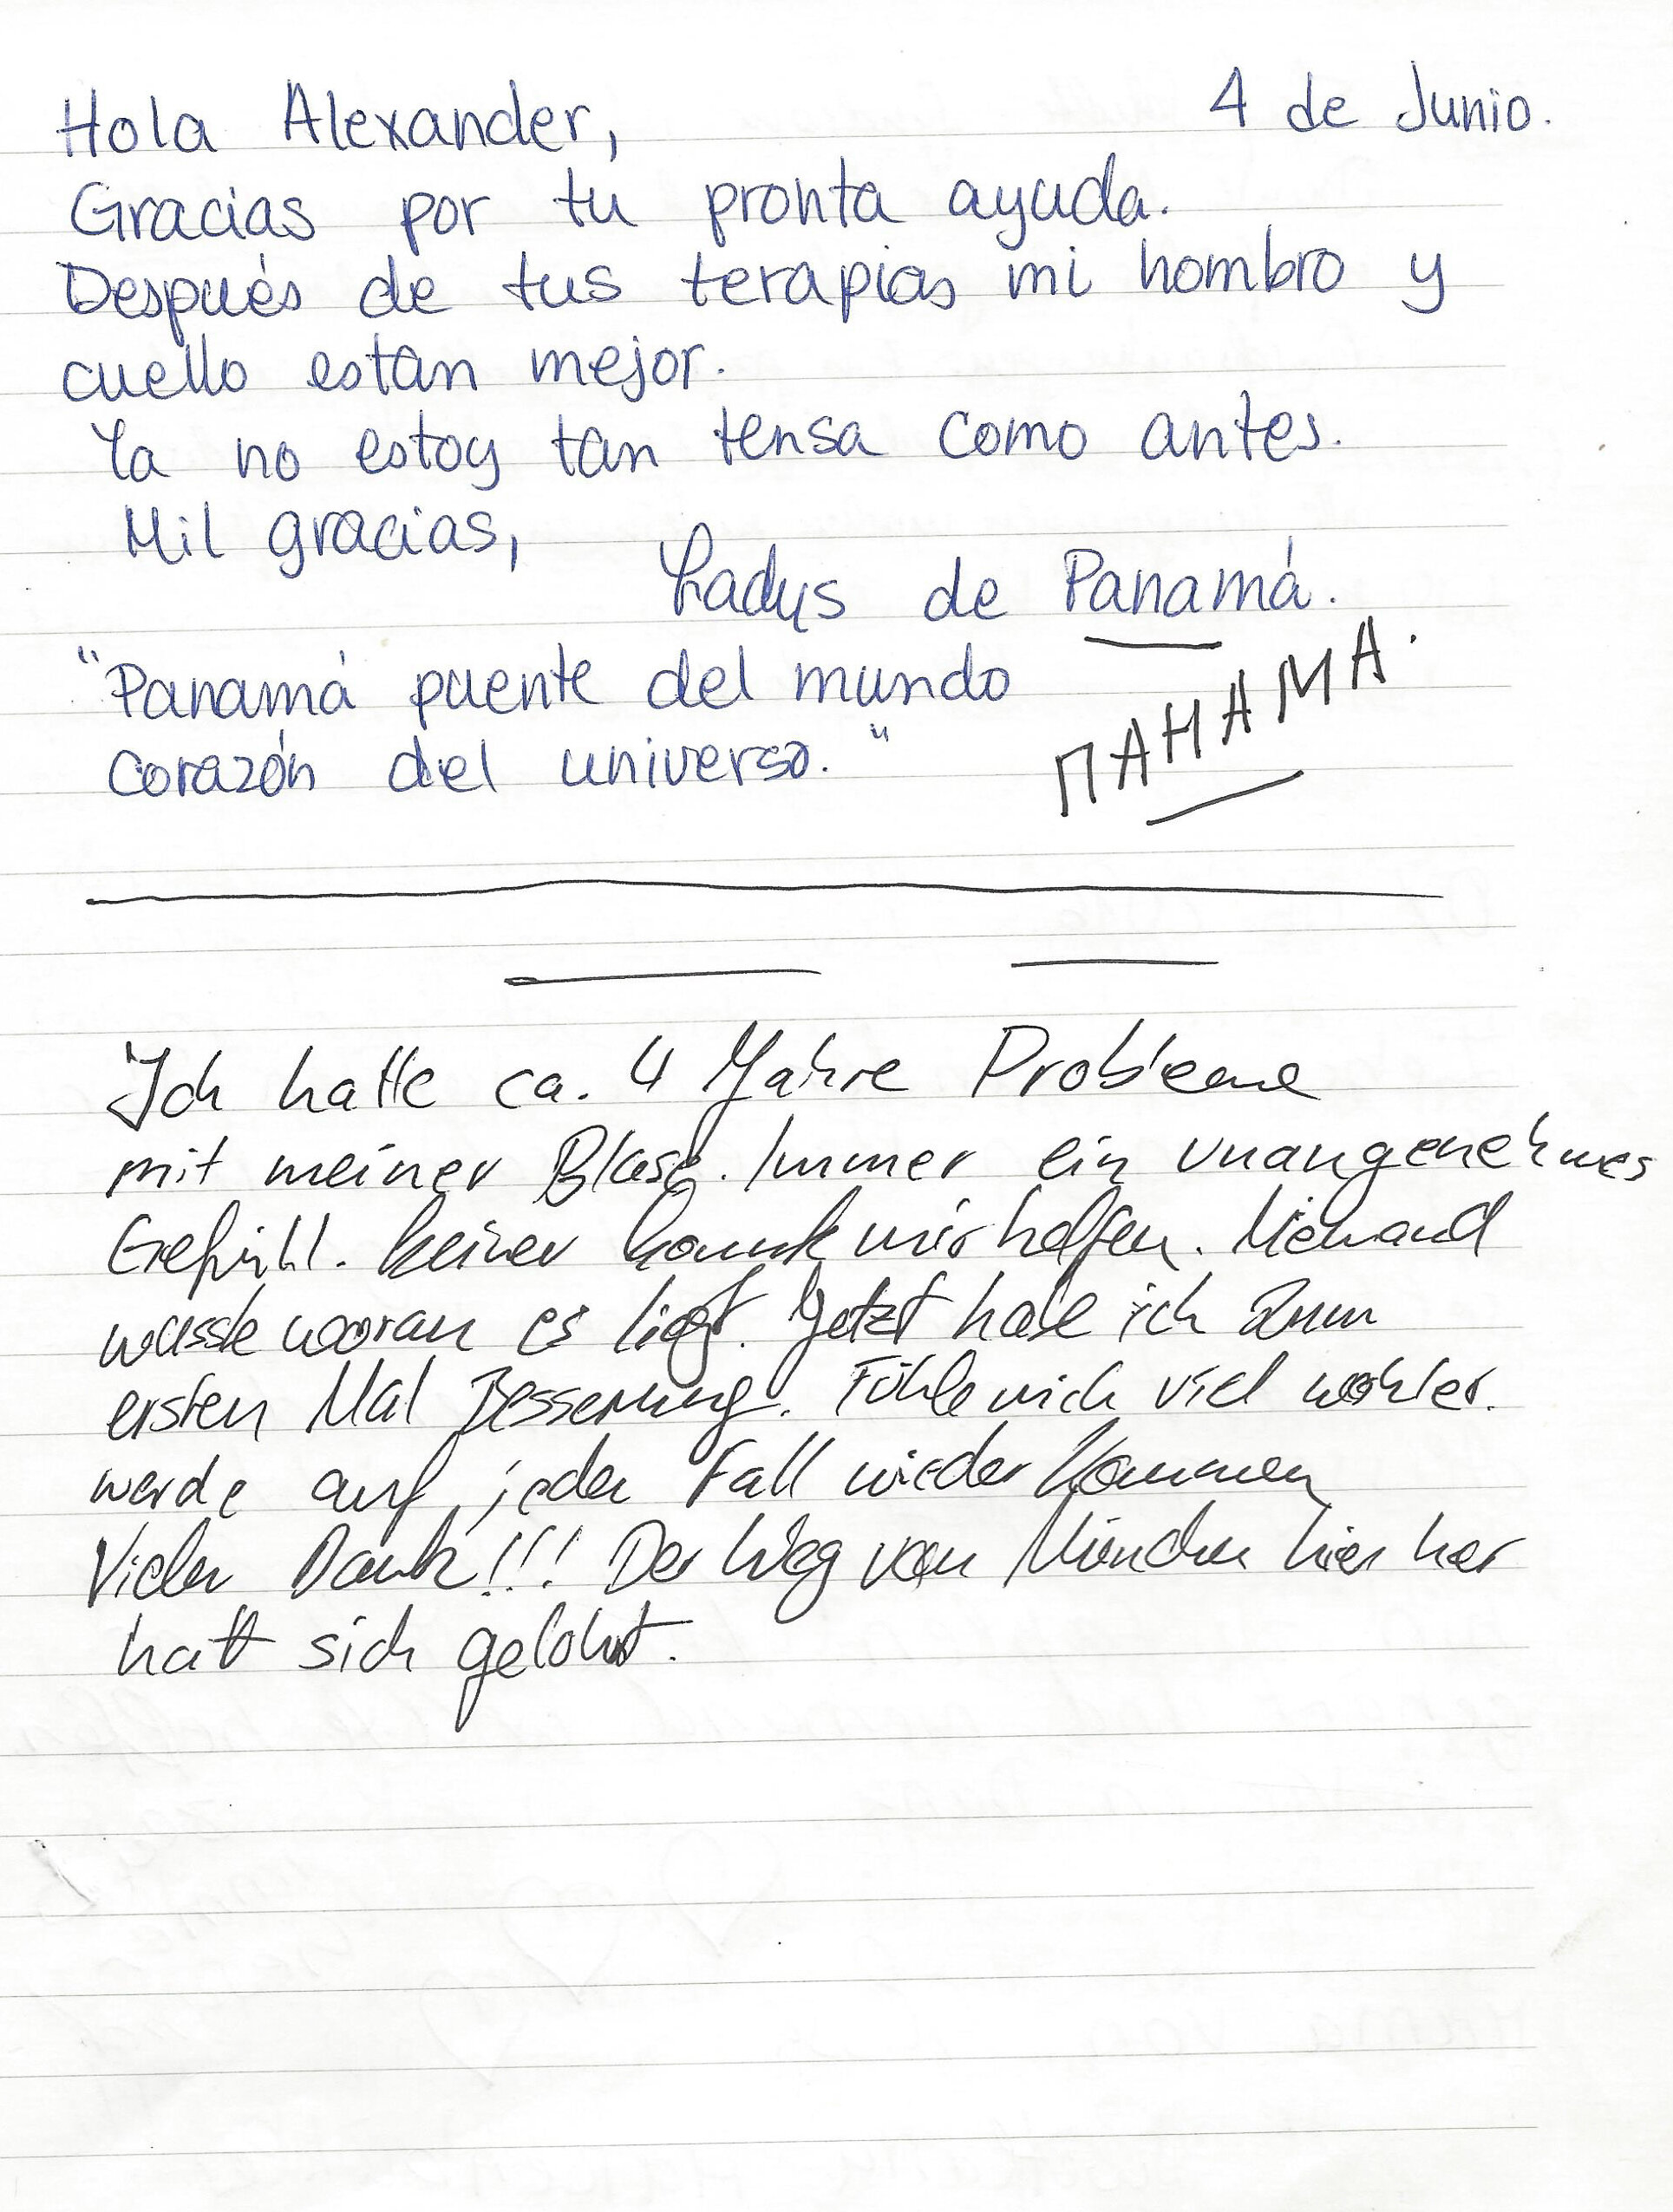 Hola Alexander, 4 de Junio.
Gracias por tu pronta ayuda.
Después de tus terapias mi hombro y
cuello estan mejor.
Ya no estoy tan tensa como antes.
Mil gracias,
Ladys de Panamá.
"Panamá puente del mundo
corazón del universo."
ПАНАМА.
Ich hatte ca. 4 Jahre Probleme
mit meiner Blase. Immer ein unangenehmes
Gefühl. Keiner konnte mir helfen. Niemand
wusste wooran es liegt. Jetzt habe ich zum
ersten Mal Besserung. Fühle mich viel wohler.
werde auf jeden Fall wieder kommen
Vielen Dank!!! Der Weg von München hier her
hatt sich gelohnt.